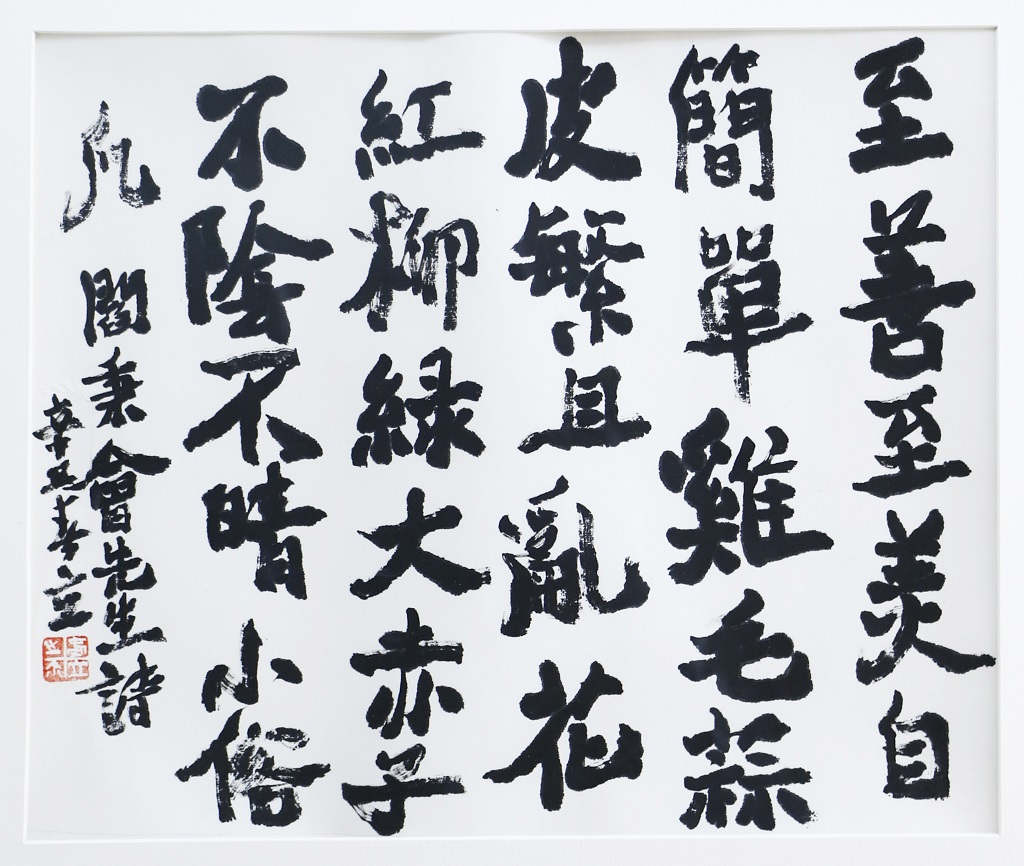 至善至美自
簡單雞毛蒜
皮繁且亂花
紅柳綠大赤子
不陰不晴小俗
凡 閻秉會先生詩
辛丑春立